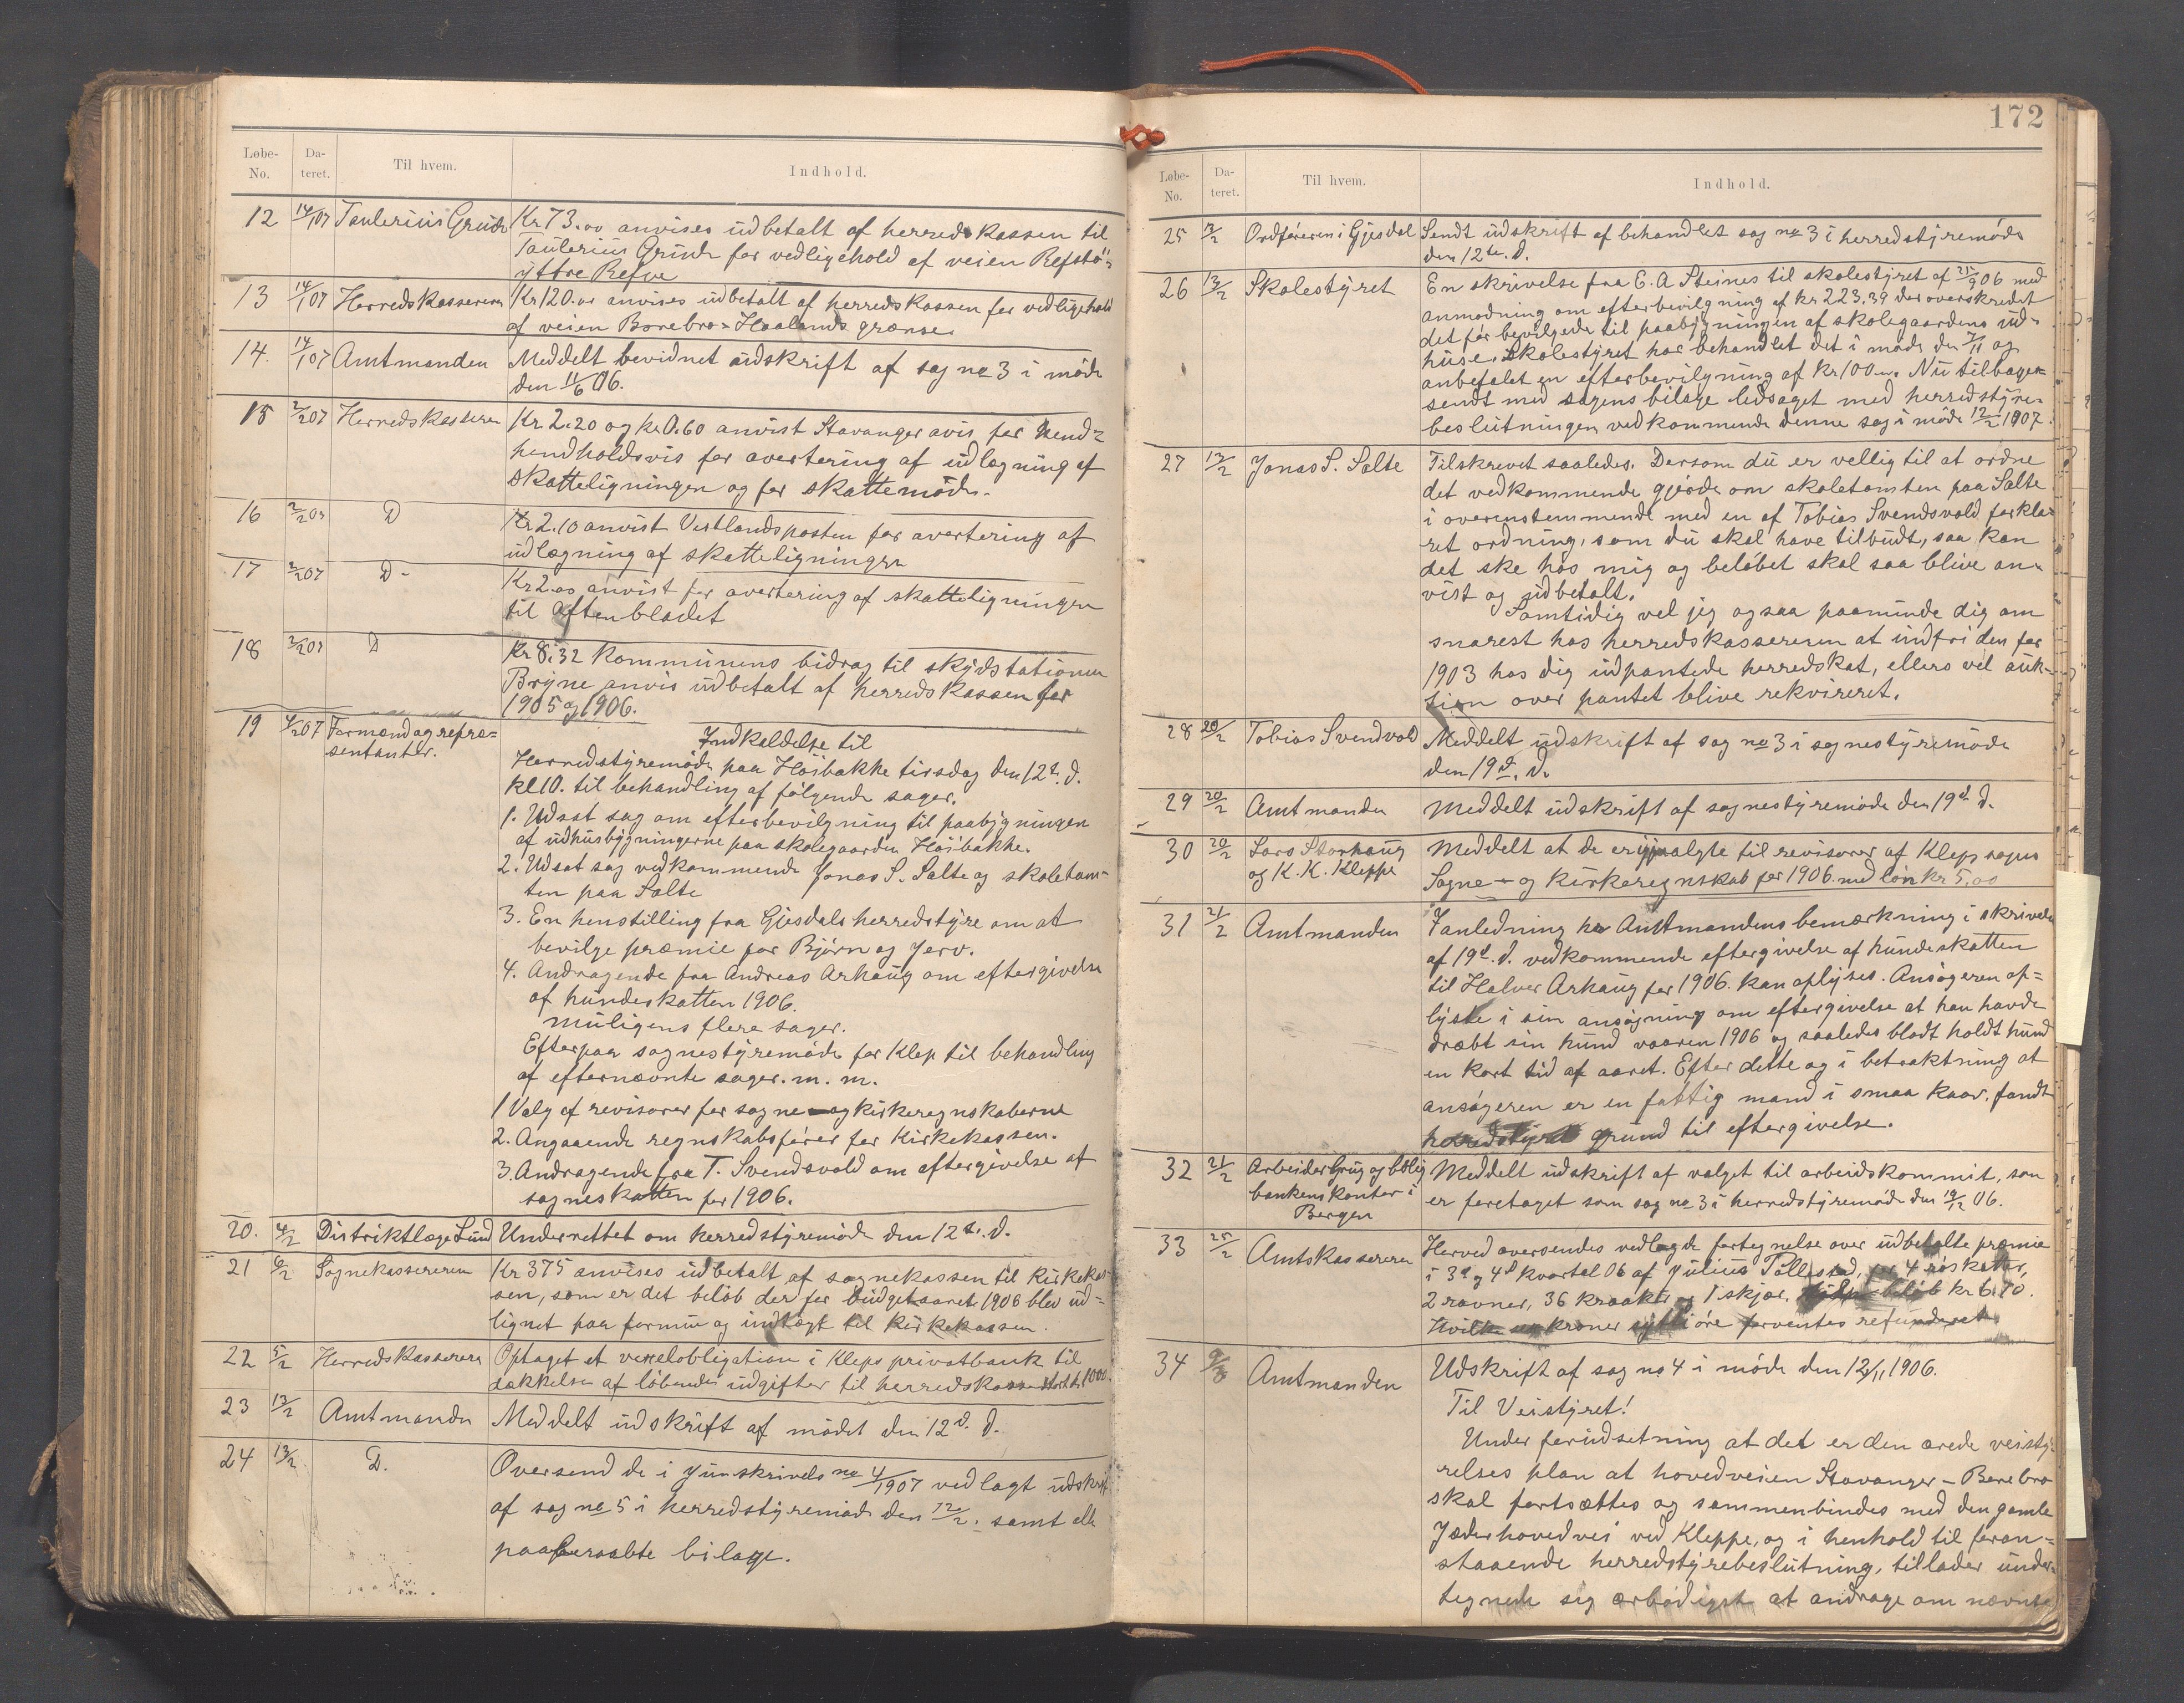 Løbe-
No.
Da-
teret.
Til hvem.
Indhold.
12 14/1 07 Taulerius Grude Kr 73.00 anvises udbetalt af herredskassen til
Taulerius Grude for vedligehold af veien Refstø-
yttre Refve
13 14/1 07 Herredskassereren Kr 120.00 anvises udbetalt af herredskassen for vedligehold
af veien Borebro-Haalands grænse
14. 14/1 07 Amtmanden Meddelt bevidnet udskrift af sag no 3 i møde
den 11/6 06.
15 2/2 07 Herredskasseren Kr. 2.20 og kr 0.60 anvist Stavanger avis for hend-
hendholdsvis for avertering af udlægning af
skatteligningen og for skattemøde.
16 2/2 07 D Kr 2.10 anvist Vestlandsposten for avertering af
udlægning af skatteligningen
17 2/2 07 D- Kr 2.00 anvist for avertering af skatteligningen
til Aftenbladet
18 2/2 07 D Kr 8.32 kommunens bidrag til skydstationen
Bryne anvis udbetalt af herredskassen for
1905 og 1906.
19 4/2 07 Formænd og repræ-
sentanter.
Indkaldelse til
Herredstyremøde paa Høibakke tirsdag den 12te. d.
kl 10. til behandling af følgende sager.
1. Udsat sag om efterbevilgning til paabygningen
af udhusbygningerne paa skolegaarden Høibakke.
2. Udsat sag vedkommende Jonas S. Salte og skoletom-
ten paa Salte
3. En henstilling fra Gjesdals herredstyre om at
bevilge præmie for Bjørn og Jerv.
4. Andragende fra Andreas Arhaug om eftergivelse
af hundeskatten 1906.
muligens flere sager.
Efterpaa sognestyremøde for Klep til behandling
af efternævnte sager. m. m.
1 Valg af revisorer for sogne- og kirkeregnskaberne
2. Angaaende regnskabsfører for Kirkekassen.
3. Andragende fra T. Svendsvold om eftergivelse af
sogneskatten for 1906.
20. 4/2 Distriktlæge Lund Underrettet om herredstyremøde den 12te. d.
21 6/2 Sognekassereren Kr 375 anvises udbetalt af sognekassen til kirkekas-
sen, som er det beløb der for budgetaaret 1906 blev ud-
lignet paa formue og indtægt til kirkekassen.
22 5/2 Herredskasseren Optaget et vexelobligation i Kleps privatbank til
dækkelse af løbende udgifter til herredskassen stort kr 1000.
23 13/2 Amtmanden Meddelt udskrift af mødet den 12d. d.
24 13/2 D. Oversend de i Junskrivels no 4/1907 vedlagt udskrift
af sag no 5 i herredstyremøde den 12/2. samt alle
paaberaabte bilage.
172
Løbe-
No.
Da-
teret.
Til hvem.
Indhold.
25 13/2 Ordføreren i Gjesdal Sendt udskrift af behandlet sag no 3 i herredstyremøde
den 12te. d.
26 13/2 Skolestyret En skrivelse fra E. A Steines til skolestyret af 25/9 06 med
anmodning om efterbevilgning af kr 223.39 der overskredet
det før bevilgede til paabygningen af skolegaardens ud-
huse. Skolestyret har behandlet det i møde den 3/11 og
anbefalet en efterbevilgning af Kr 100.00. Nu tilbage-
sendt med sagens bilage ledsaget med herredstyre-
beslutningen vedkommende denne sag i møde 12/2 1907.
27 13/2 Jonas S. Salte Tilskrevet saaledes. Dersom du er vellig til at ordne
det vedkommende gjerde om skoletomten paa Salte
i overenstemmende med en af Tobias Svendsvold forkla-
ret ordning, som du skal have tilbudt, saa kan
det ske hos mig og beløbet skal saa blive an-
vist og udbetalt.
Samtidig vel jeg ogsaa paaminde dig om
snarest hos herredskassereren at indfri den for
1903 hos dig udpantede herredskat, ellers vel auk-
sion over pantet blive rekvireret.
28 20/2 Tobias Svendvold Meddelt udskrift af sag no 3 i sognestyremøde
den 19d. d.
29 20/2 Amtmanden Meddelt udskrift af sognestyremøde den 19d d.
30 20/2 Lars Storhaug
og K. K. Kleppe
Meddelt at de er valgte til revisorer af Klep sogns
Sogne- og kirkeregnskab for 1906. med løn kr 5,00
31 21/2 Amtmanden I anledning hr Amtmandens bemærkning i skrivelse
af 19d. d. vedkommende eftergivelse af hundeskatten
til Halver Arhaug for 1906. kan oplyses. Ansøgeren op-
lyste i sin ansøgning om eftergivelse at han havde
dræbt sin hund vaaren 1906 og saaledes blodt holdt hund
en kort tid af aaret. Efter dette og i betraktning at
ansøgeren er en fattig mand i smaa kaar. fandt
herredstyret grund til eftergivelse.
32 21/2 Arbeider Brug og bolig
bankens kontor i
Bergen
Meddelt udskrift af valget til arbeidskommit, som
er foretaget som sag no 3 i herredstyremøde den 19/12 06.
33 25/2 Amtskasseren Herved oversendes vedlagde fortegnelse over udbetalte præmie
i 3d og 4d kvartal 06 af Julius Tollestad, 4 røskatter,
2 ravner, 36 kraaker og 1 skjor. beløb kr 6.70.
Hvilke kroner sytti øre forventes refunderet
34 9/3 Amtmanden Udskrift af sag no 4 i møde den 12/11 1906.
Til Veistyret!
Under forudsetning at det er den ærede veisty-
relses plan at hovedveien Stavanger - Borebro
skal fortsættes og sammenbindes med den gamle
Jæderhovedvei ved Kleppe, og i henhold til foran-
staaende herredstyrebeslutning, tillader under-
tegnede sig ærbødigst at andrage om nævnte